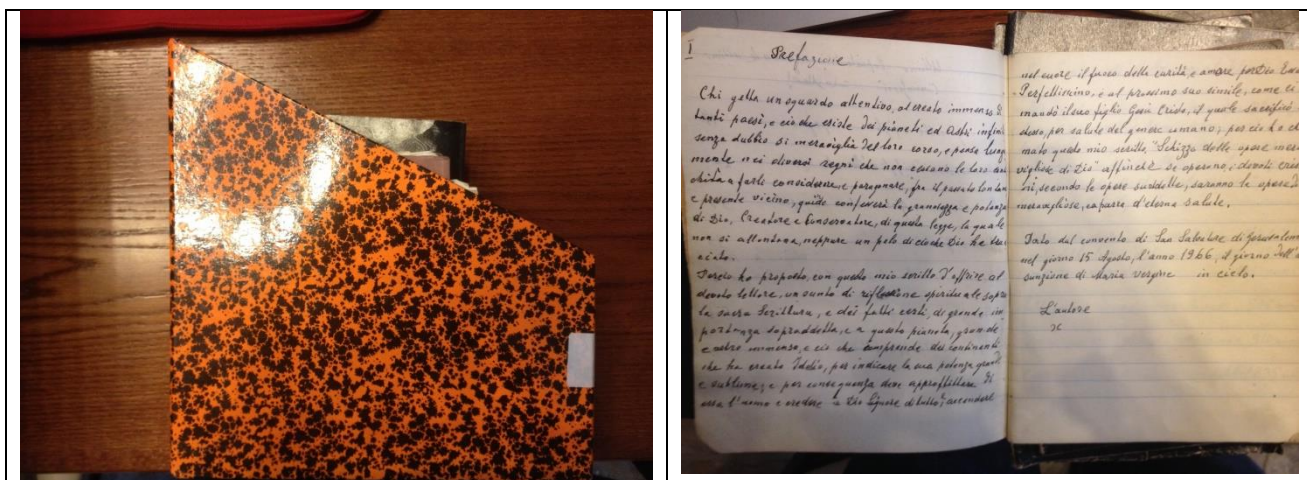 I
Prefazione
Chi getta un sguardo attentivo, al creato immenso di
tanti paesi, e ciò che esiste dei pianeti ed Astri infini
senza dubbio si meraviglia del loro corso, e pensa lunga
mente nei diversi regni che non cessano le loro
a farle considerare e paragonare, fra il passato lontan
e presente vicino, quide confesserà la grandezza e potenza
di Dio, Creatore e Conservatore, di questa legge, la quale
non si allontana, neppure un pelo di ciò che Dio ha trac
ciato.
Perciò ho proposto, con questo mio scritto d'offrire al
devoto lettore, un sunto di riflessione spirituale sopra
la sacra Scrittura, e dei fatti certi, di grande im
portanza sopraddetta, e a questo pianeta, grande
e astro immenso, e ciò che comprende dei continenti
che ha creato Iddio, per indicare la sua potenza grande
e sublime; e per conseguenza deve approffittare di
essa l'uomo e credere a Dio Signore di tutto; accendere
nel cuore il fuoco della carità, e amore per Dio
Perfettissimo, e al prossimo suo simile, come ci
mandò il suo figlio Gesù Cristo, il quale sacrificò
stesso, per salute del genere umano; per ciò ho chi
mato questo mio scritto "Schizzo delle opere mera
vigliose di Dio" affinchè se operano, i devoti cris
ni, secondo le opere suddette, saranno le opere
meravigliose, caparra d'eterna salute.
Dato dal convento di San Salvatore di Gerusalemm
nel giorno 15 Agosto, l'anno 1966, il giorno dell'As
sunzione di Maria Vergine in cielo.
L'autore